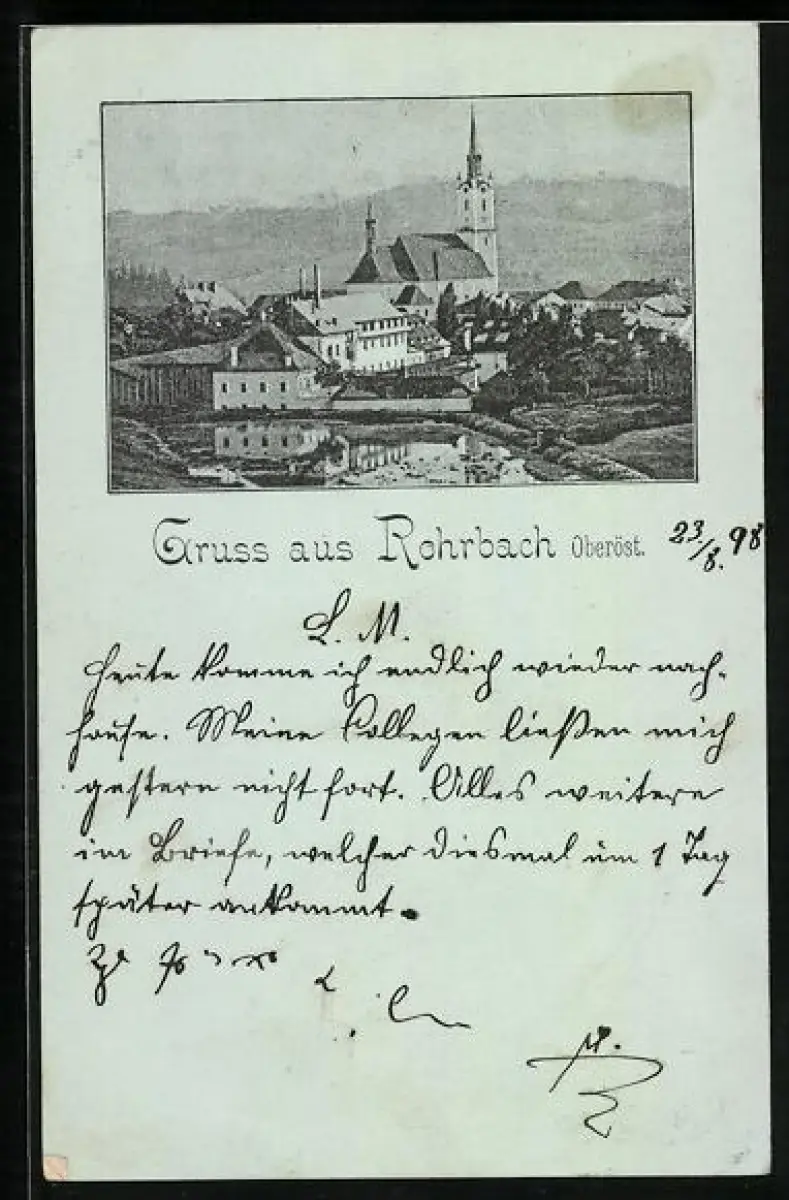 Gruss aus Rohrbach Oberöst. 23/8. 98
L. M.
Heute komme ich endlich wieder nach-
hause. Meine Collegen ließen mich
gestern nicht fort. Alles weitere
im Briefe, welcher diesmal um 1 Tag
später ankommt.